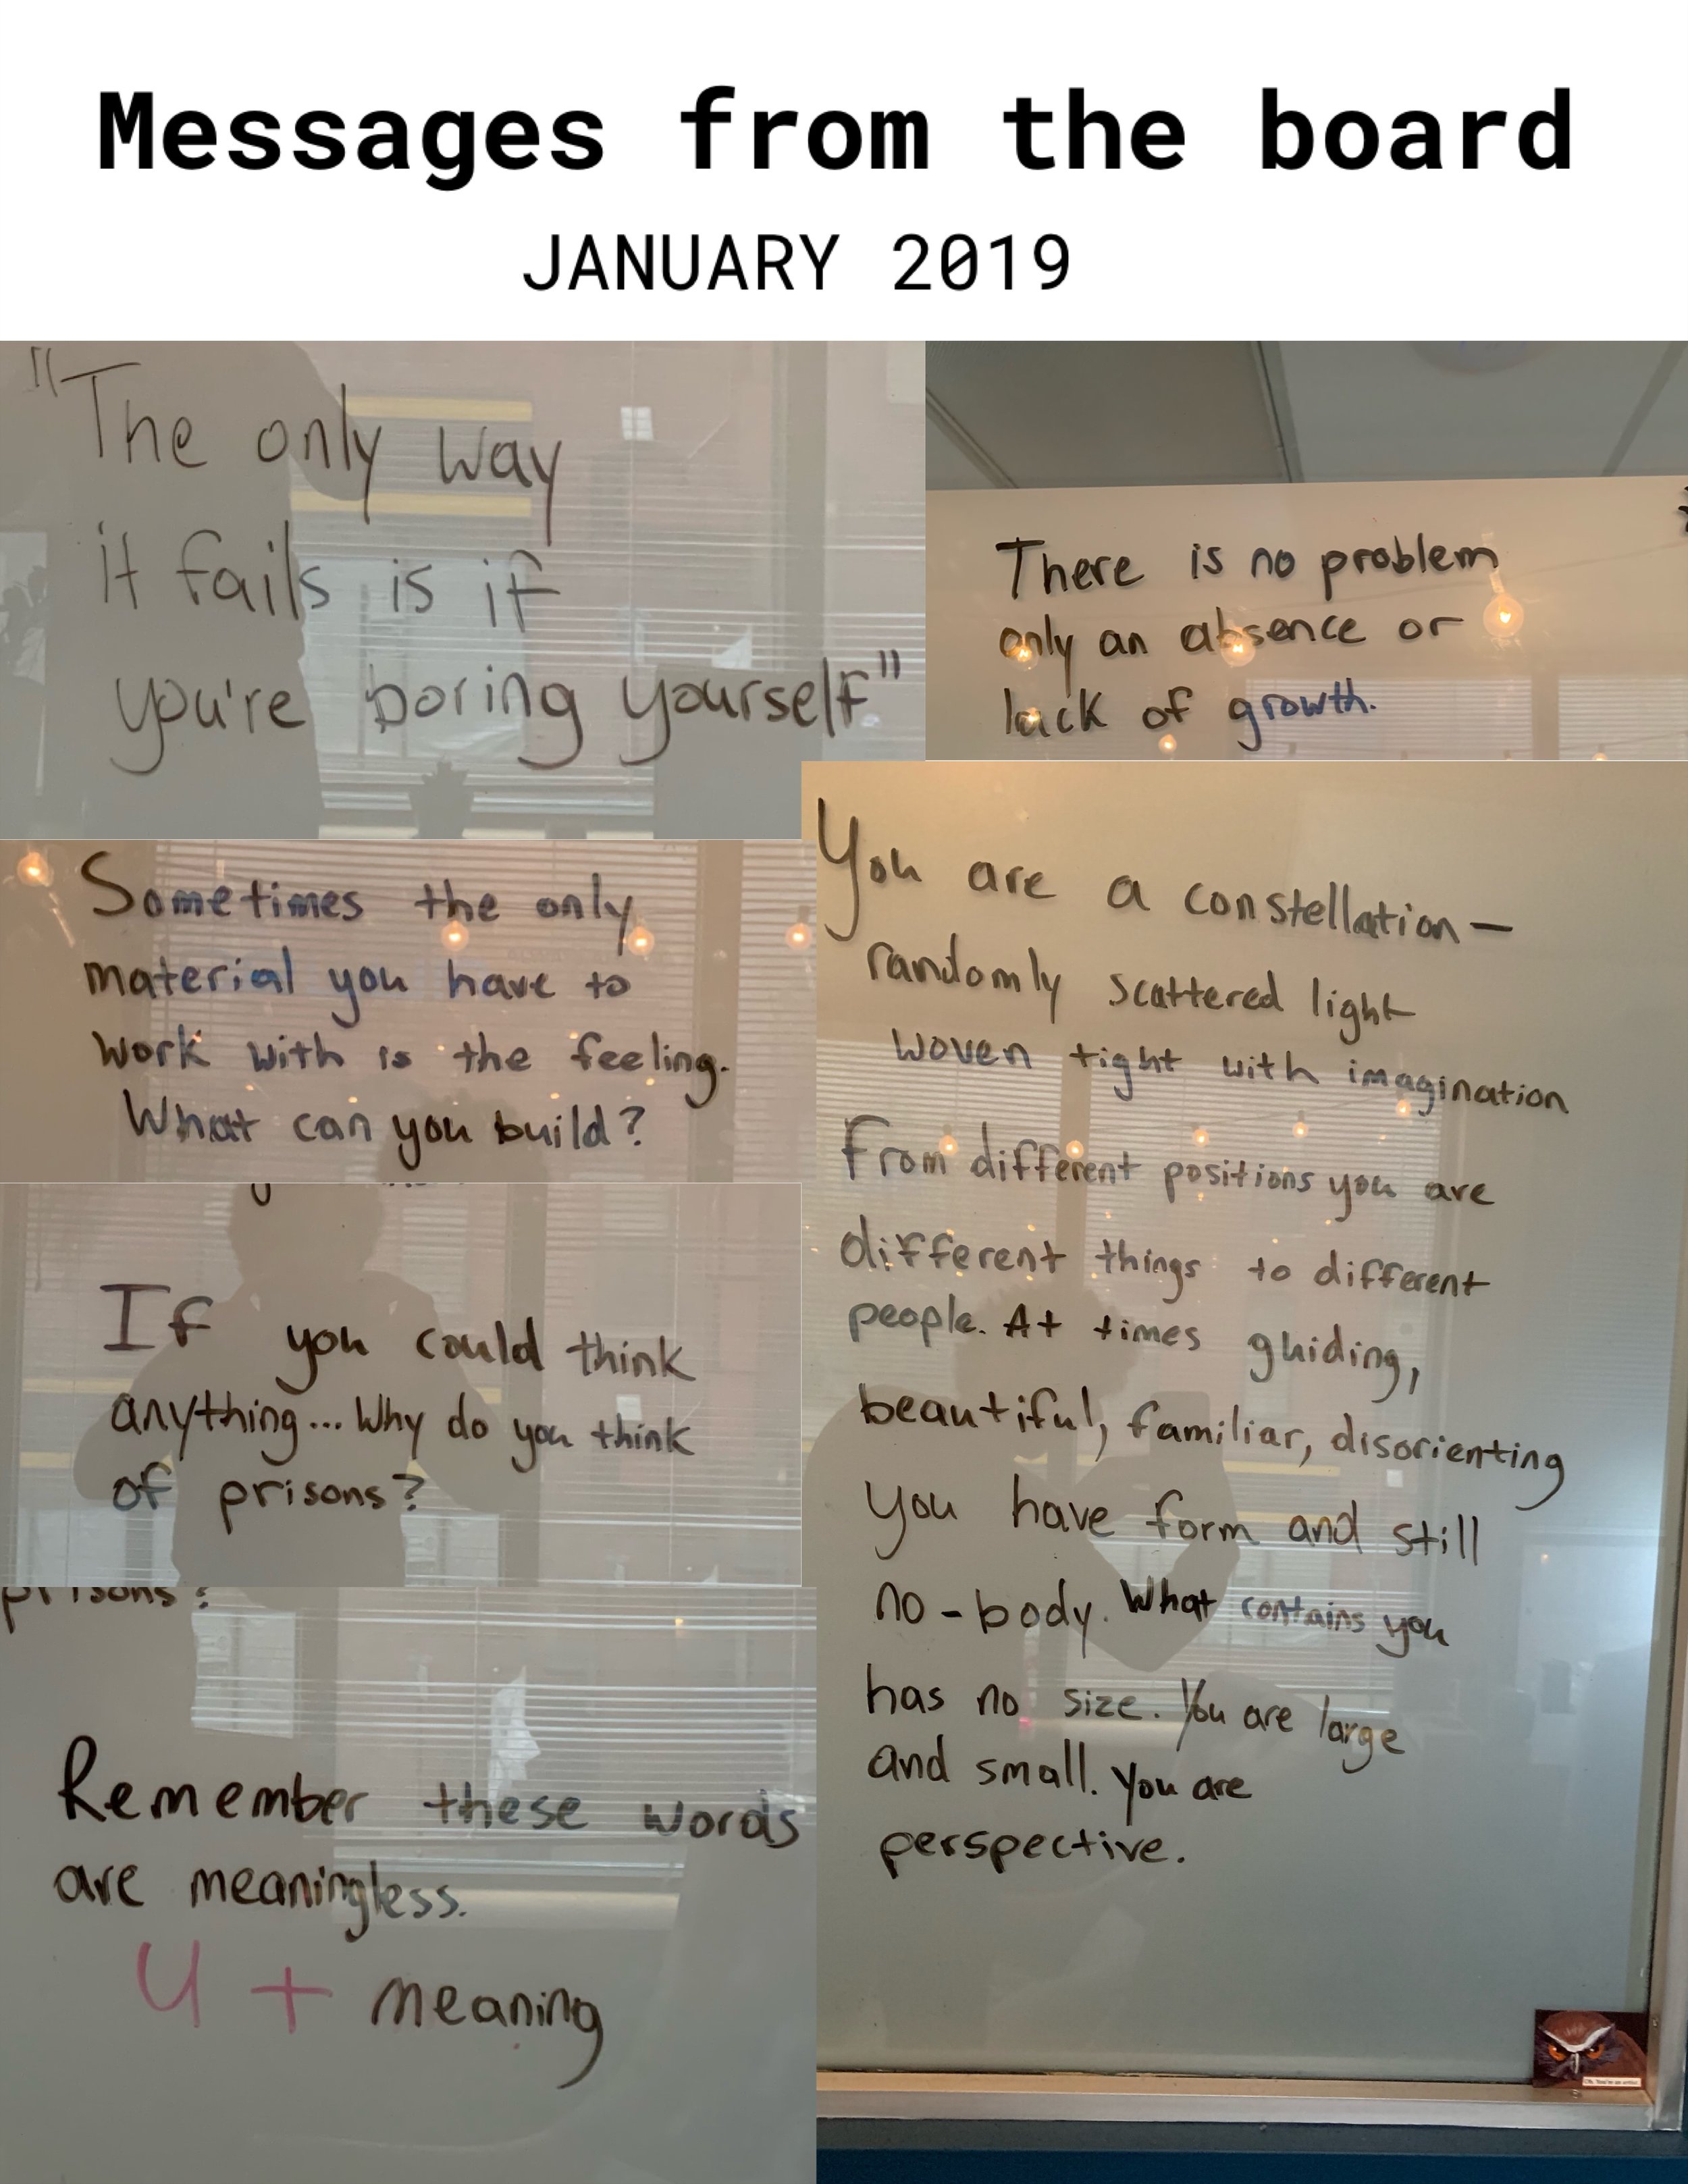 Messages from the board
JANUARY 2019
"The only way
it fails is if
you're boring yourself"
There is no problem
only an absence or
lack of growth.
Sometimes the only
material you have to
work with is the feeling.
What can you build?
If you could think
anything... Why do you think
of prisons?
prisons?
Remember these words
are meaningless.
U + meaning
You are a constellation—
randomly scattered light
woven tight with imagination
From different positions you are
different things to different
people. At times guiding,
beautiful, familiar, disorienting
you have form and still
no-body. What contains you
has no size. You are large
and small. You are
perspective.